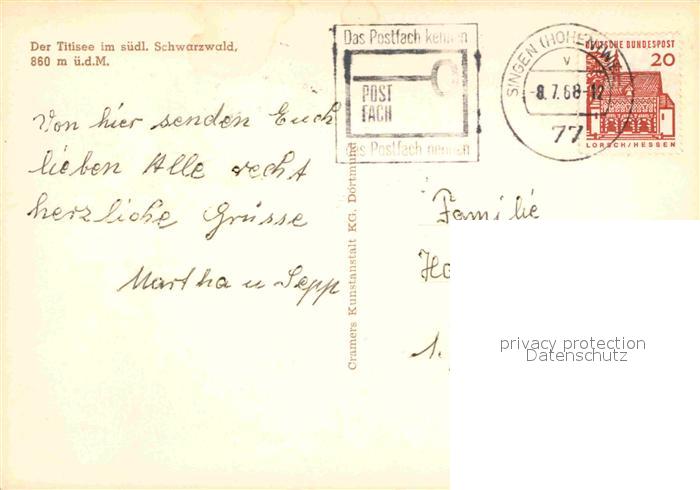 Der Titisee im südl. Schwarzwald,
860 m ü.d.M.
Das Postfach kennen
POST
FACH
das Postfach nennen
SINGEN (HOHENTWIEL)
v
-8.7.68-12
77
DEUTSCHE BUNDESPOST
20
LORSCH/HESSEN
Von hier senden Euch
lieben Alle recht
herzliche Grüsse
Martha u Sepp
Cramers Kunstanstalt KG. Dortmund
Familie
Ha
privacy protection
Datenschutz